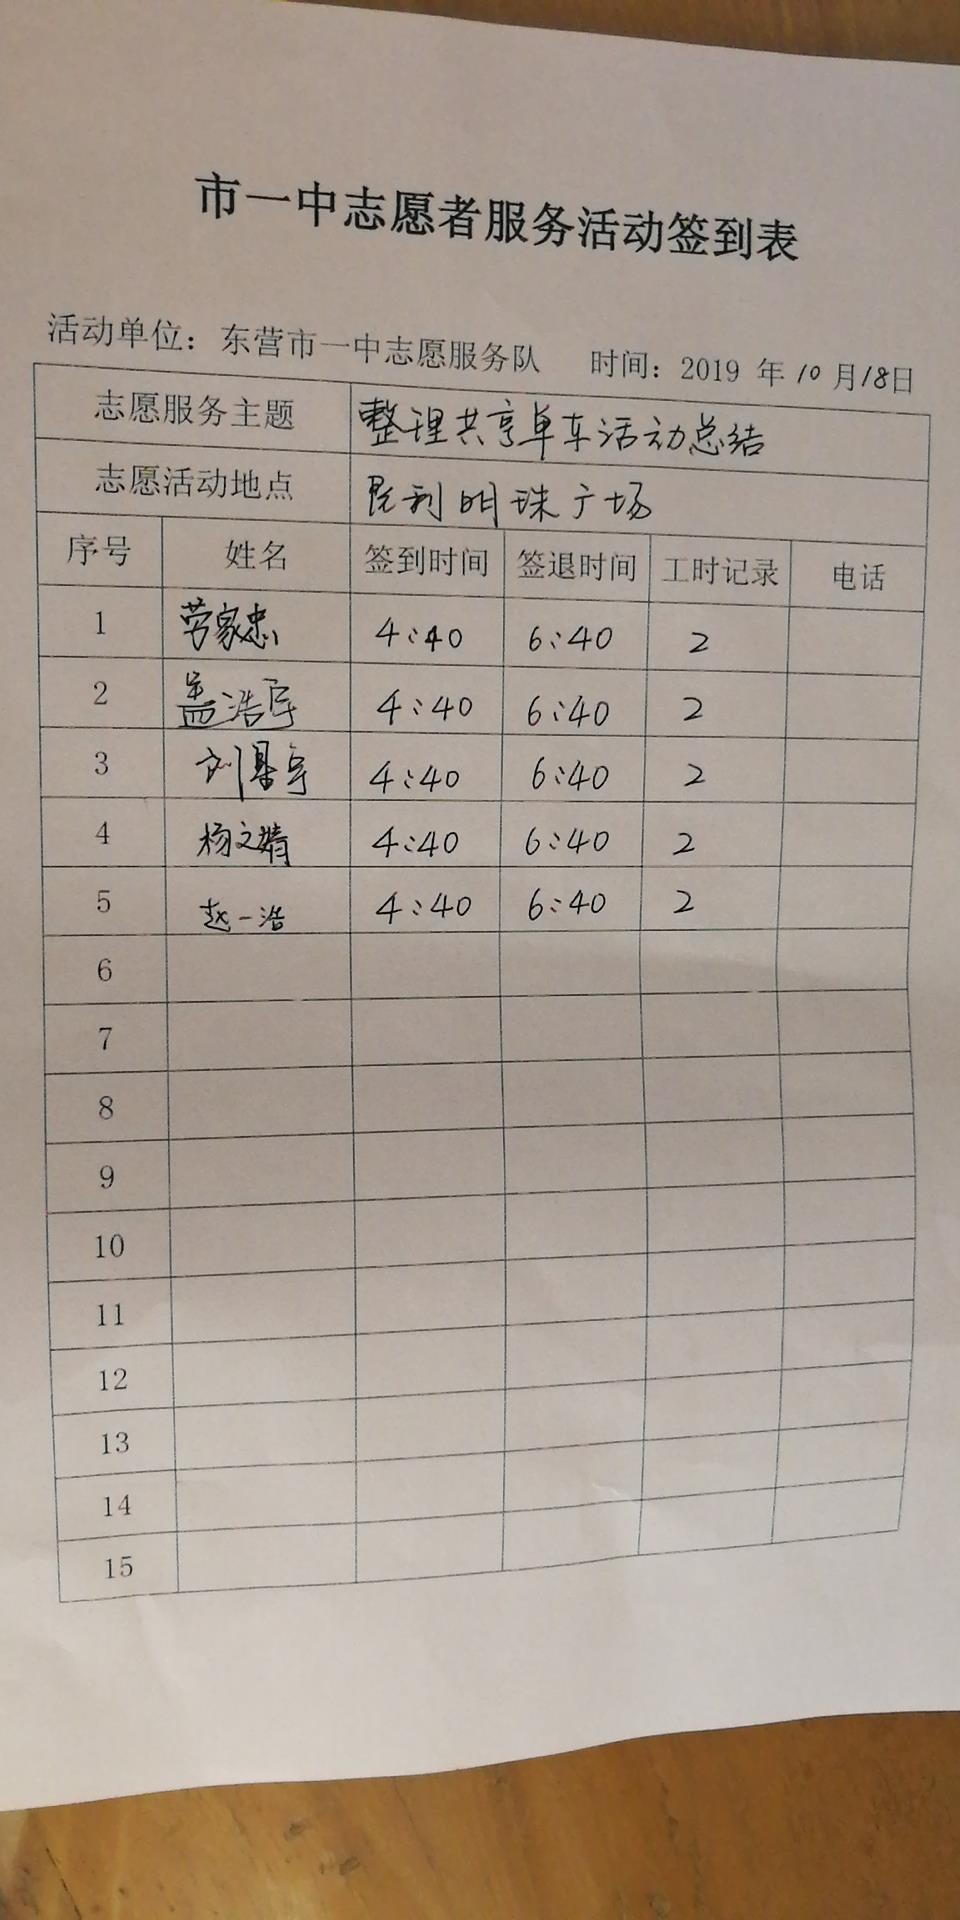 市一中志愿者服务活动签到表
活动单位：东营市一中志愿服务队 时间：2019 年 10 月 18日
志愿服务主题 整理共享单车活动总结
志愿活动地点 利明珠广场
序号 姓名 签到时间 签退时间 工时记录 电话
1 劳家忠 4:40 6:40 2
2 盖浩宇 4:40 6:40 2
3 刘宇 4:40 6:40 2
4 杨文婧 4:40 6:40 2
5 赵一浩 4:40 6:40 2
6
7
8
9
10
11
12
13
14
15